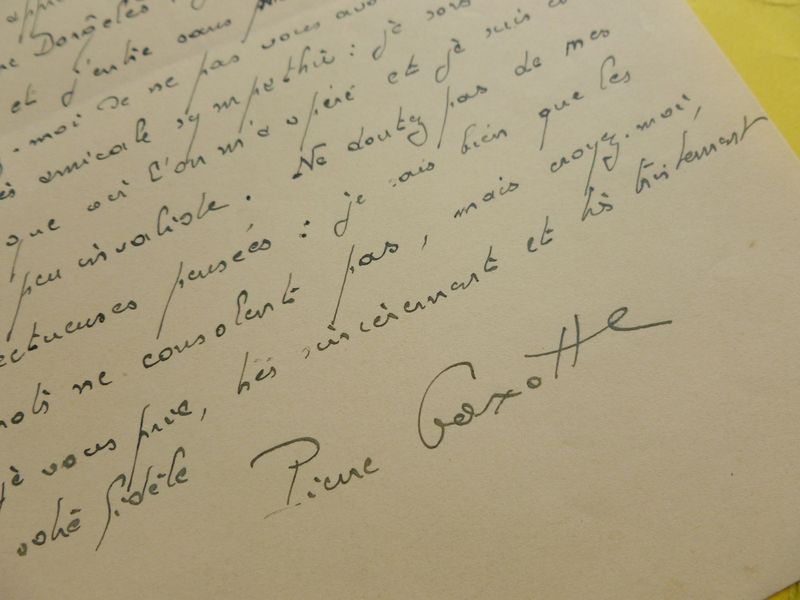 Dorgelès
et d'entre sans
moi de ne pas vous avo
amicale sympathie : je sors
que où l'on m'a opéré et je suis
peu invalide. Ne doutez pas de mes
ectueuses pensées : je sais bien que les
mots ne consolent pas, mais croyez-moi,
je vous prie, très sincèrement et très tristement
votre fidèle Pierre Gaxotte